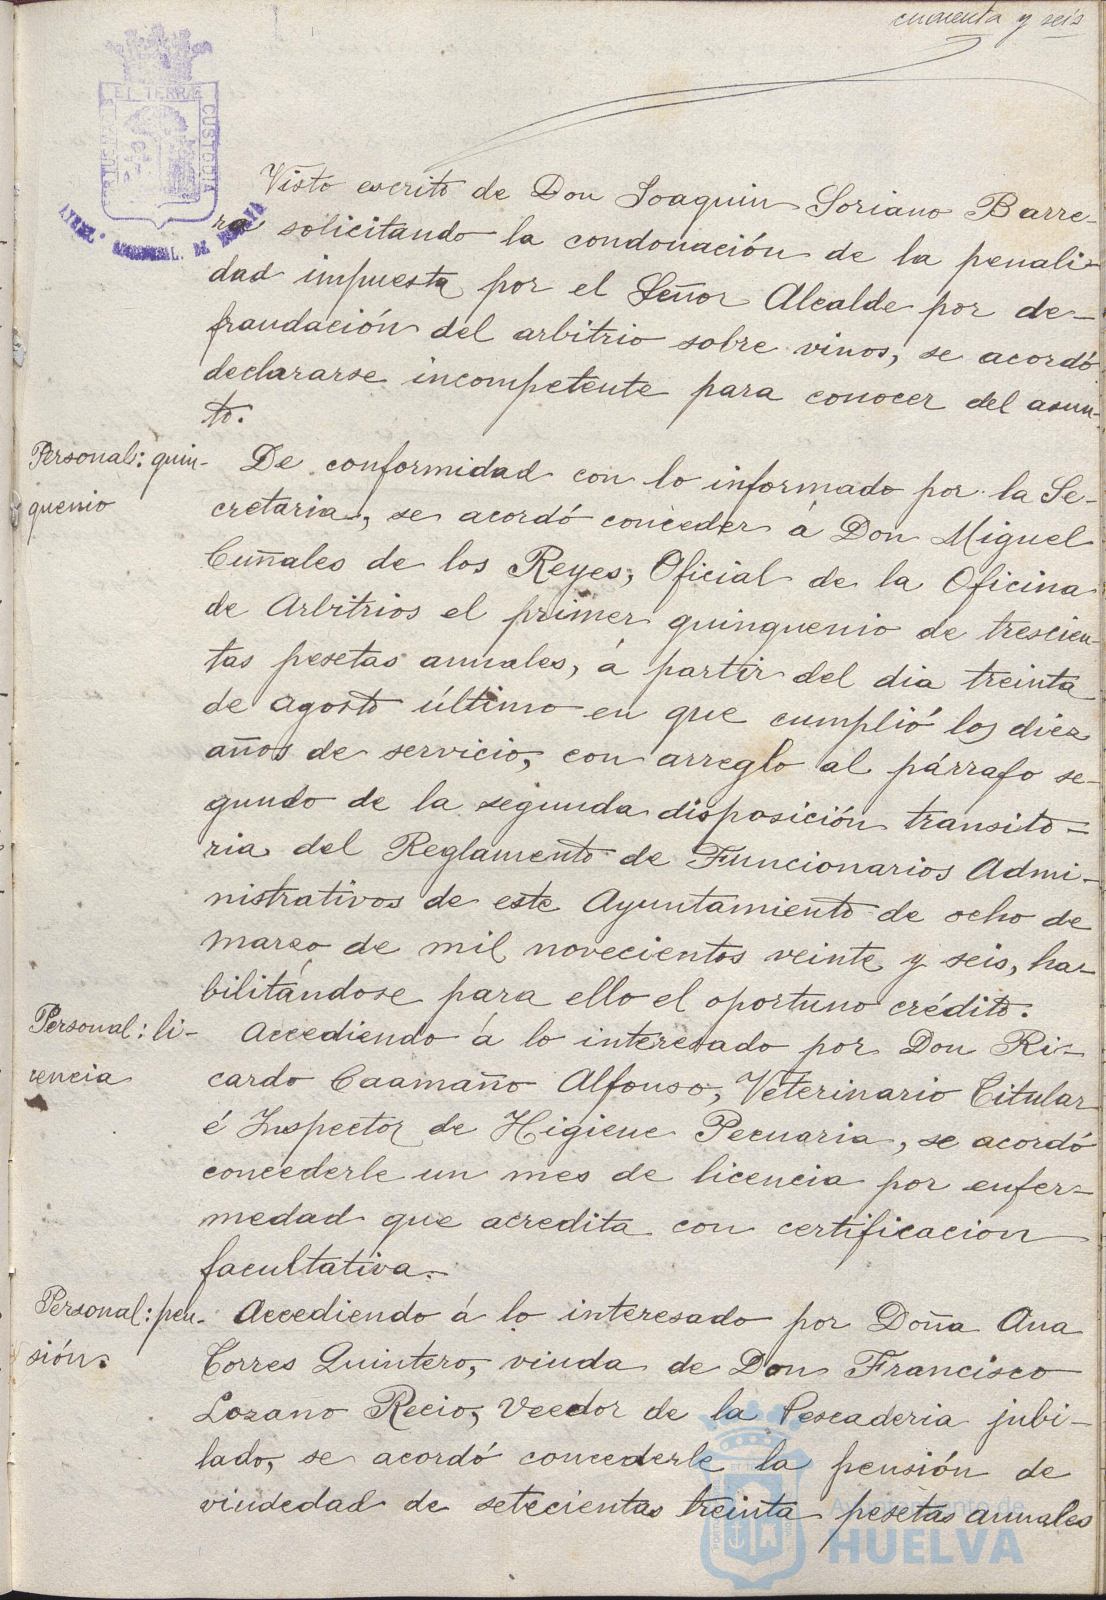 cuarenta y seis
EL TERRÆ
CUSTODIA
Visto escrito de Don Joaquin Soriano Barre-
ra solicitando la condonación de la penali-
dad impuesta por el Señor Alcalde por de-
fraudación del arbitrio sobre vinos, se acordó
declararse incompetente para conocer del asun-
to.
Personal: quin-
quenio
De conformidad con lo informado por la Se-
cretaria, se acordó conceder á Don Miguel
Cuñales de los Reyes, Oficial de la Oficina
de Arbitrios el primer quinquenio de trescien-
tas pesetas anuales, á partir del dia treinta
de agosto último en que cumplió los diez
años de servicio, con arreglo al párrafo se-
gundo de la segunda disposición transito-
ria del Reglamento de Funcionarios Admi-
nistrativos de este Ayuntamiento de ocho de
marzo de mil novecientos veinte y seis, ha-
bilitándose para ello el oportuno crédito.
Personal: li-
cencia
Accediendo á lo interesado por Don Ri-
cardo Caamaño Alfonso, Veterinario Titular
é Inspector de Higiene Pecuaria, se acordó
concederle un mes de licencia por enfer-
medad que acredita con certificacion
facultativa.
Personal: pen-
sión.
Accediendo á lo interesado por Doña Ana
Torres Quintero, viuda de Don Francisco
Lozano Recio, Veedor de la Pescaderia jubi-
lado, se acordó concederle la pensión de
viudedad de setecientas treinta pesetas anuales
Ayuntamiento de
HUELVA